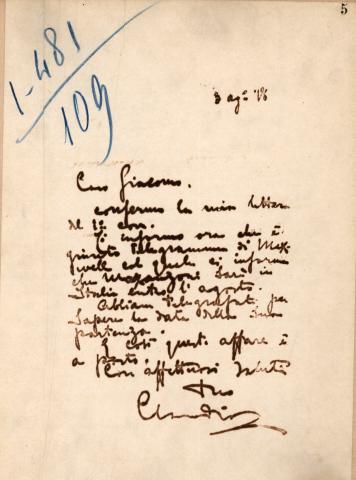 5
1-481
109
3 ag° '16
Caro Giacomo.
confermo la mia lettera
del 1° cor.
Ti informo ora che è
giunto telegramma di Max-
well col quale ci informa
che sarà in
Italia entro l'agosto.
Abbiam telegrafato per
sapere la data della sua
partenza.
E così questo affare è
a posto.
Con affettuosi saluti
Tuo
Claudio